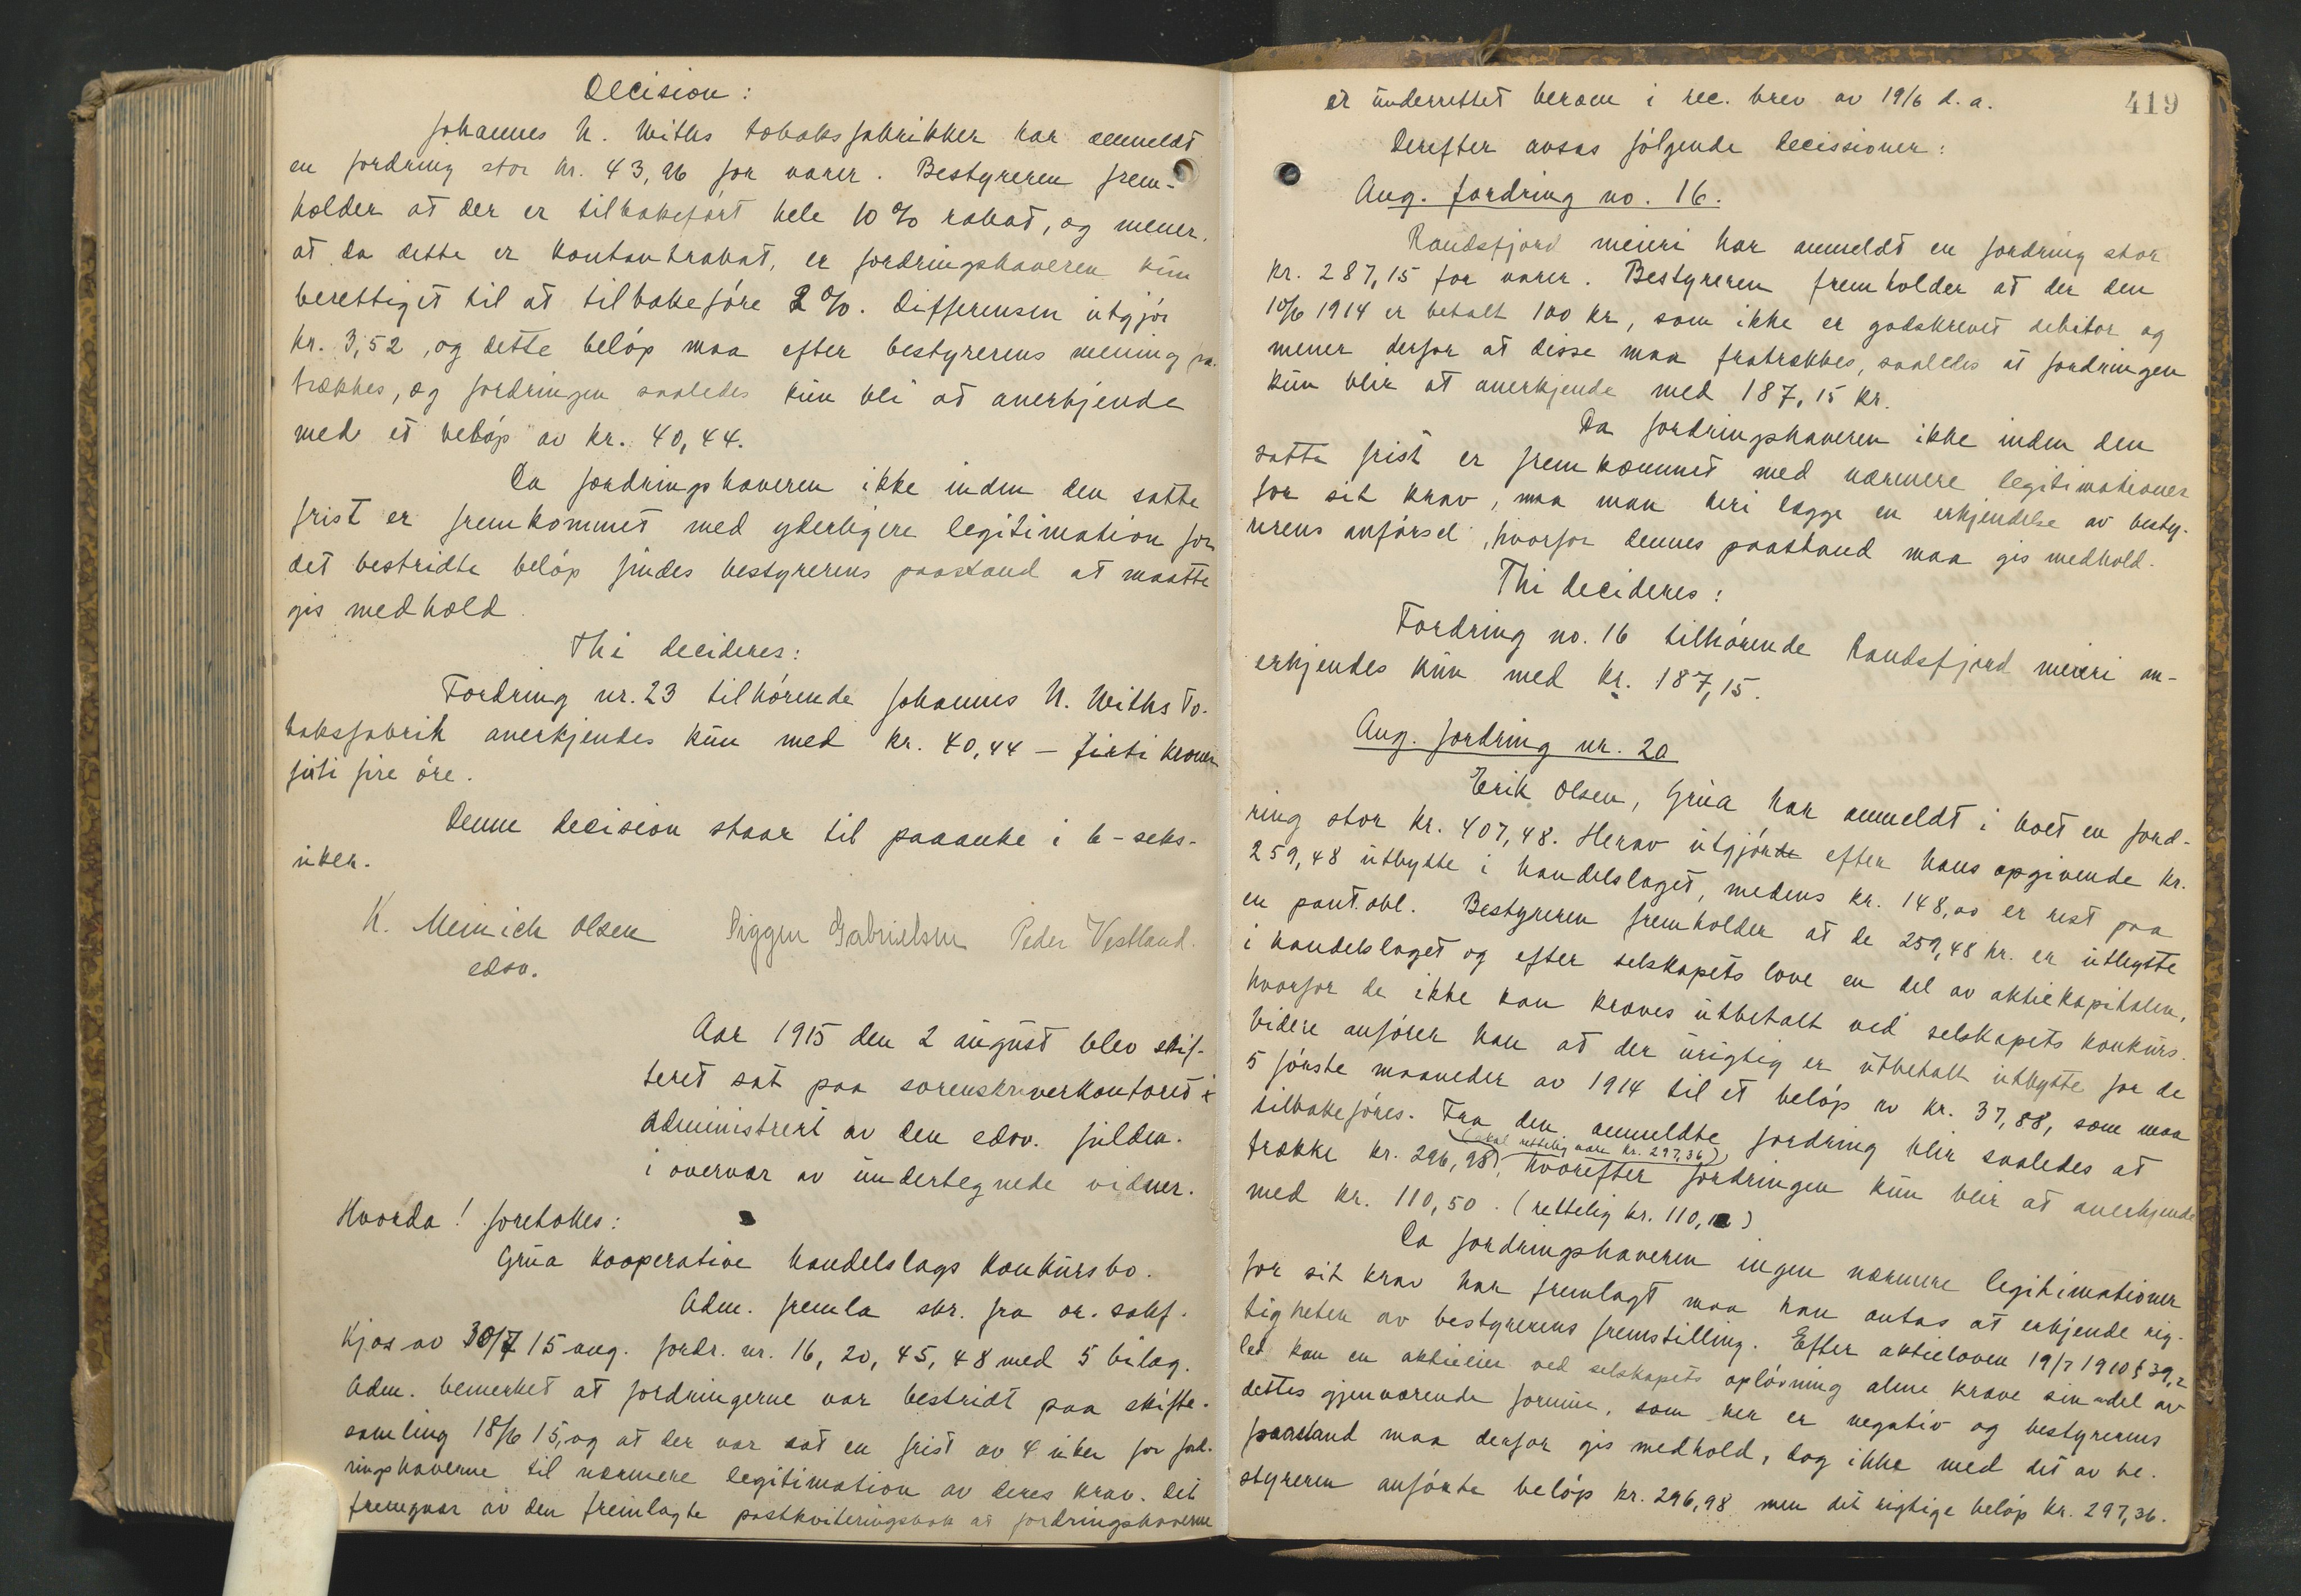 Decision:
Johannes N. Withs tobaksfabrikker har anmeldt
en fordring stor kr. 43,96 for varer. Bestyreren frem-
holder at der er tilbakeført hele 10 % rabat, og mener,
at da dette er kontantrabat, er fordringshaveren kun
berettiget til at tilbakeføre 2 %. Differensen utgjør
kr. 3,52, og dette beløp maa efter bestyrerens mening fra-
trækkes, og fordringen saaledes kun bli at anerkjende
med et beløp av kr. 40,44.
Da fordringshaveren ikke inden den satte
frist er fremkommet med yderligere legitimation for
det bestridte beløp findes bestyrerens paastand at maatte
gis medhold.
Thi decideres:
Fordring nr. 23 tilhørende Johannes N. Withs To-
baksfabrik anerkjendes kun med kr. 40,44 – firti kroner
firti fire øre.
Denne decision staar til paaanke i 6 - seks -
uker.
K. Meinich Olsen Sigguu Gabrielsen Peder Vestland.
edsv.
Aar 1915 den 2 august blev skif-
teret sat paa sorenskriverkontoret &
administrert av den edsv. fuldm.
i overvær av undertegnede vidner.
Hvorda! foretokes:
Grua kooperative handelslags konkursbo.
Adm. fremla skr. fra or. sakf.
Kjos av 30/7 15 ang. fordr. nr. 16, 20, 45, 48 med 5 bilag.
Adm. bemerket at fordringerne var bestridt paa skifte-
samling 18/6 15, og at der var sat en frist av 4 uker for ford-
ringshaverne til nærmere legitimation av deres krav. Det
fremgaar av den fremlagte postkviteringsbok at fordringshaverne
419
er underrettet herom i rec. brev av 19/6 d.a.
Derefter avsas følgende decissioner:
Ang. fordring no. 16.
Randsfjord meieri har anmeldt en fordring stor
kr. 287,15 for varer. Bestyreren fremholder at der den
10/6 1914 er betalt 100 kr, som ikke er godskrevet debitor og
mener derfor at disse maa fratrækkes, saaledes at fordringen
kun blir at anerkjende med 187,15 kr.
Da fordringshaveren ikke inden den
satte frist er fremkommet med nærmere legitimationer
for sit krav, maa man heri lægge en erkjendelse av besty-
rerens anførsel, hvorfor dennes paastand maa gis medhold.
Thi decideres:
Fordring no. 16 tilhørende Randsfjord meieri an-
erkjendes kun med kr. 187,15.
Ang. fordring nr. 20
Erik Olsen, Grua har anmeldt i boet en ford-
ring stor kr. 407,48. Herav utgjørde efter hans opgivende kr.
259,48 utbytte i handelslaget, medens kr. 148,00 er rest paa
en pant.obl. Bestyreren fremholder at de 259,48 kr. er utbytte
i handelslaget og efter selskapets love en del av aktiekapitalen,
hvorfor de ikke kan kræves utbetalt ved selskapets konkurs.
Videre anfører han at der urigtig er utbetalt utbytte for de
5 første maaneder av 1914 til et beløp av kr. 37,88, som maa
tilbakeføres. Fra den anmeldte fordring blir saaledes at
(skal rettelig være kr. 297,36),
trække kr. 296,98, hvorefter fordringen kun blir at anerkjende
med kr. 110,50. (rettelig kr. 110,12)
Da fordringshaveren ingen nærmere legitimationer
for sit krav har fremlagt maa han antas at erkjende rig-
tigheten av bestyrerens fremstilling. Efter aktieloven 19/7 1910 § 39, 2
led kan en aktieeier ved selskapets opløsning alene kræve sin andel av
dettes gjenværende formue, som her er negativ og bestyrerens
paastand maa derfor gis medhold, dog ikke med det av be-
styreren anførte beløp kr. 296,98 men det rigtige beløp kr. 297,36.